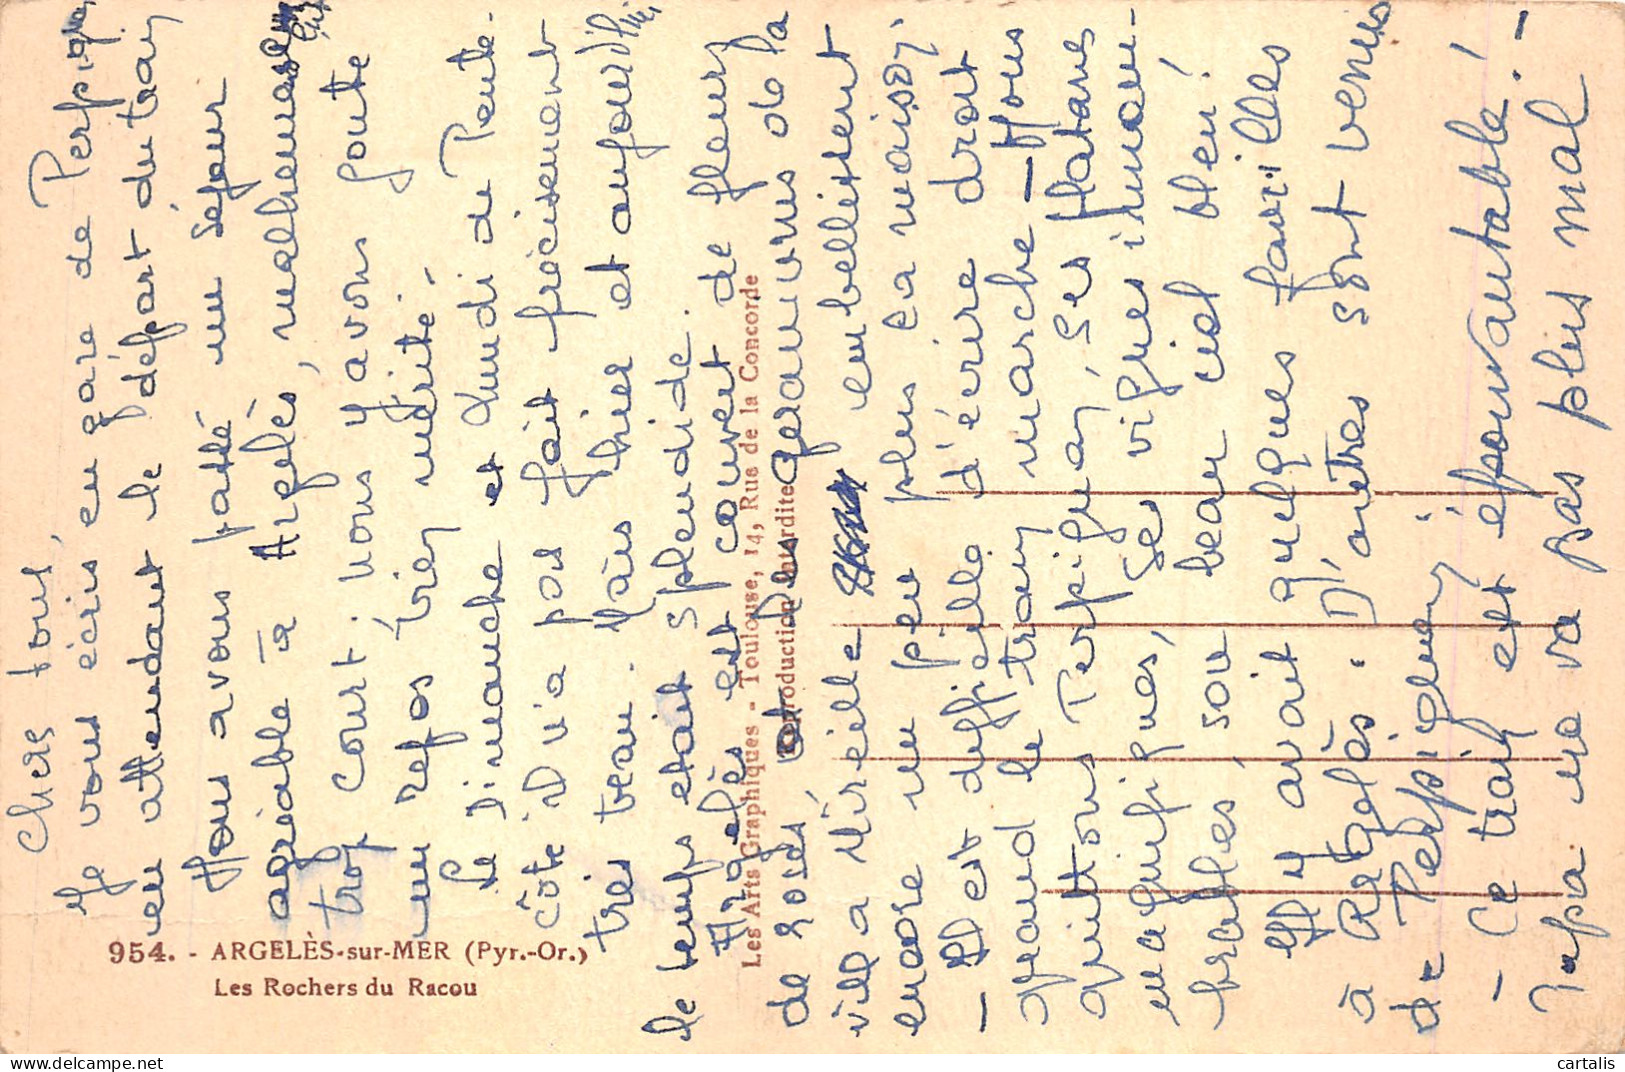 Chers tous,
Je vous écris, en gare de Perpignan,
en attendant le départ du train
Nous avons passé un séjour
agréable à Argelès, malheureusement
trop court. Nous y avons goûté
un repos bien mérité.
Le Dimanche et Lundi de Pente-
côte il n'a pas fait précisément
très beau. Mais hier et aujourd'hui,
le temps était splendide.
Argelès est couvert de fleurs
de roses, et les géraniums de la
villa Mireille embellissent
encore un peu plus la maison.
- Il est difficile d'écrire droit
quand le train marche - Nous
quittons Perpignan, ses platanes
magnifiques, ses vignes innom-
brables, son beau ciel bleu!
Il y avait quelques familles
à Argelès. D'autres sont venus
de Perpignan.
- Ce train est épouvantable! -
Papa ne va pas plus mal
954. - ARGELÈS-sur-MER (Pyr.-Or.)
Les Rochers du Racou
Les Arts Graphiques - Toulouse, 14, Rue de la Concorde
Reproduction interdite
cartalis